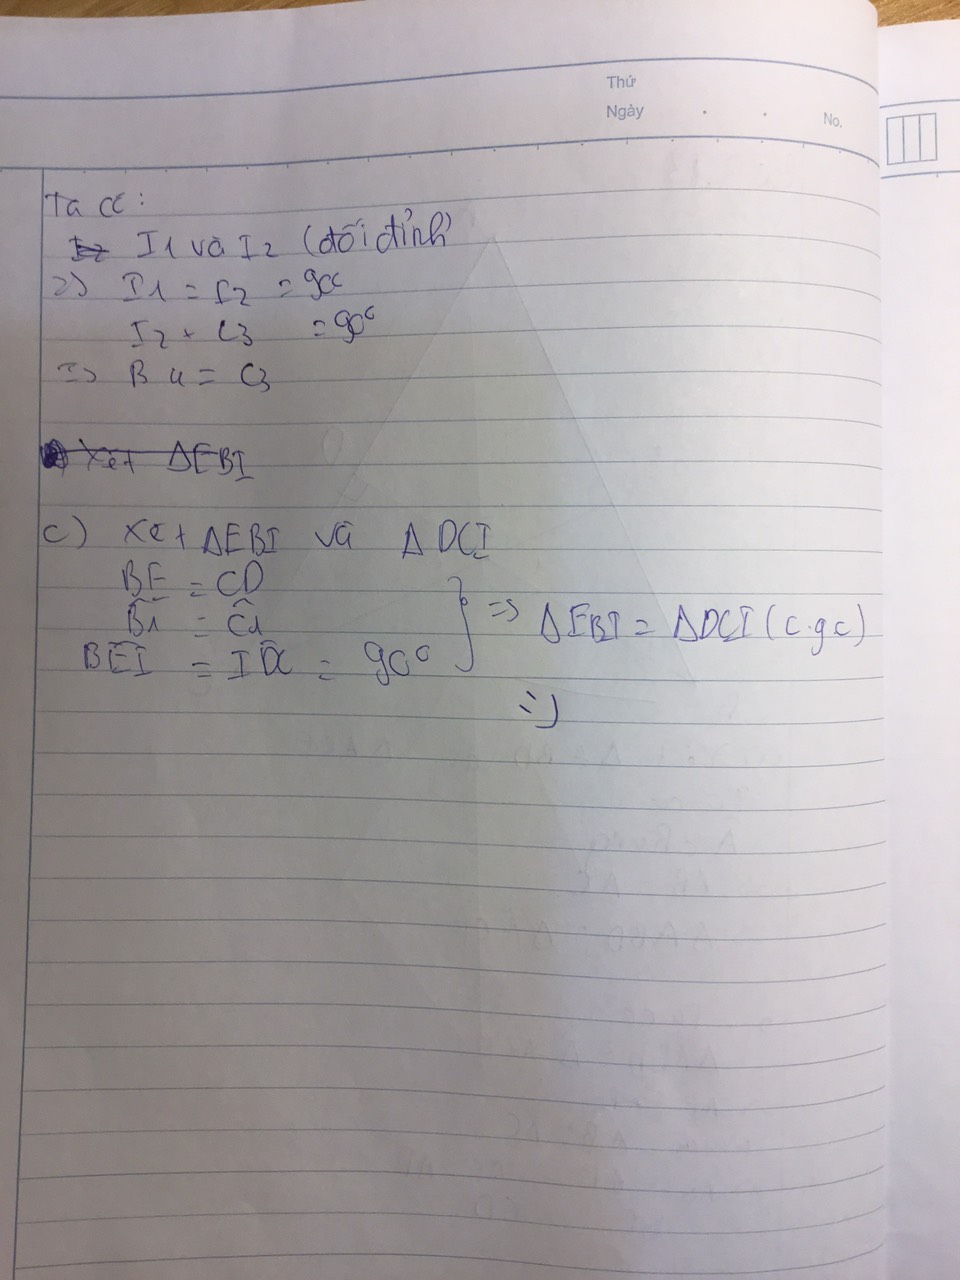 Thứ
Ngày . . No.
Ta có:
I1 và I2 (đối đỉnh)
=> I1 = I2 = 90°
I2 + C3 = 90°
=> B4 = C3
Xét ΔEBI
c) Xét ΔEBI và ΔDCI
BE = CD
B̂1 = Ĉ1
BÊI = ID̂C = 90°
=> ΔEBI = ΔDCI (c.g.c)
=>